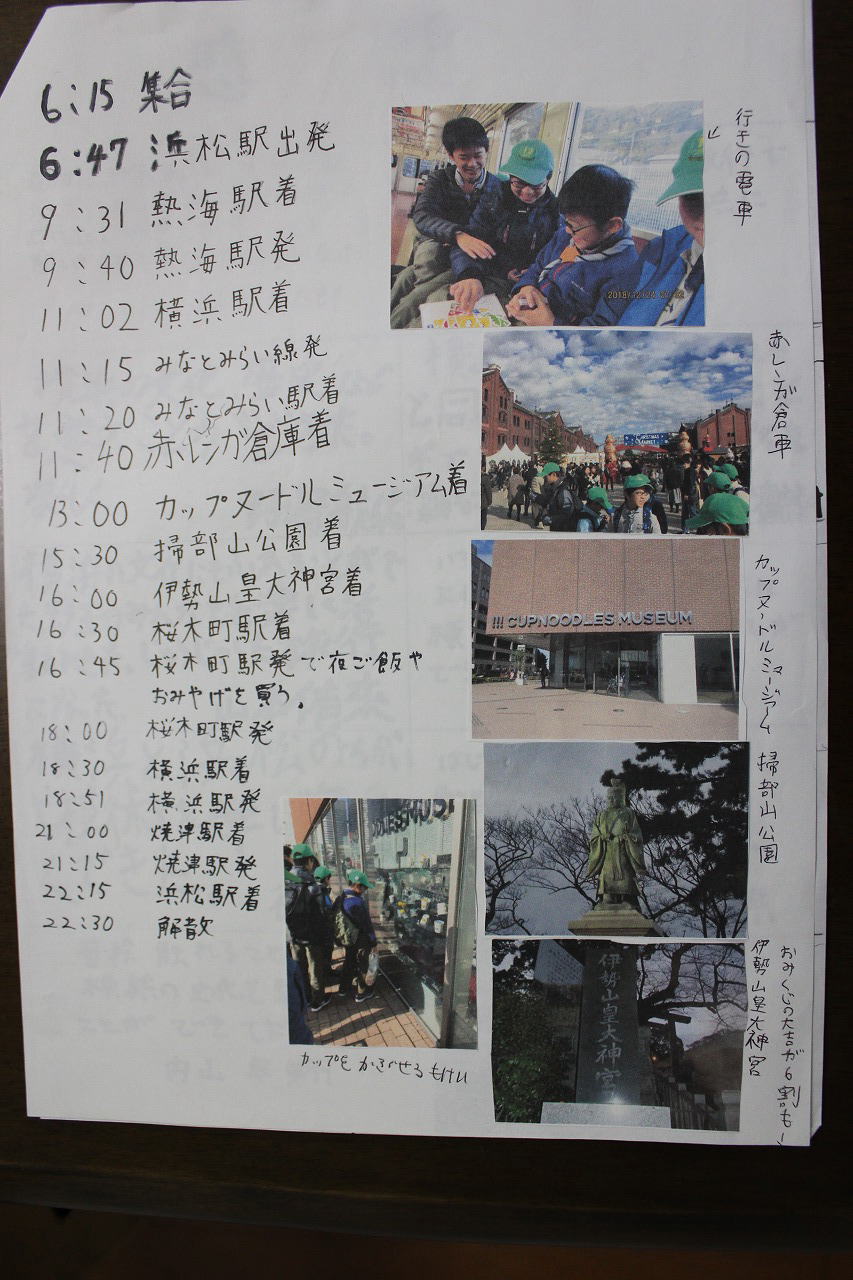 6:15 集合
6:47 浜松駅出発
9:31 熱海駅着
9:40 熱海駅発
11:02 横浜駅着
11:15 みなとみらい線発
11:20 みなとみらい駅着
11:40 赤レンガ倉庫着
13:00 カップヌードルミュージアム着
15:30 掃部山公園着
16:00 伊勢山皇大神宮着
16:30 桜木町駅着
16:45 桜木町駅発で夜ご飯や
おみやげを買う。
18:00 桜木町駅発
18:30 横浜駅着
18:51 横浜駅発
21:00 焼津駅着
21:15 焼津駅発
22:15 浜松駅着
22:30 解散
行きの電車
赤レンガ倉庫
CHRISTMAS MARKET
カップヌードルミュージアム
!!! CUPNOODLES MUSEUM
掃部山公園
伊勢山皇大神宮
おみくじの大吉が6割も
伊勢山皇大神宮
カップを かさべせる もけい